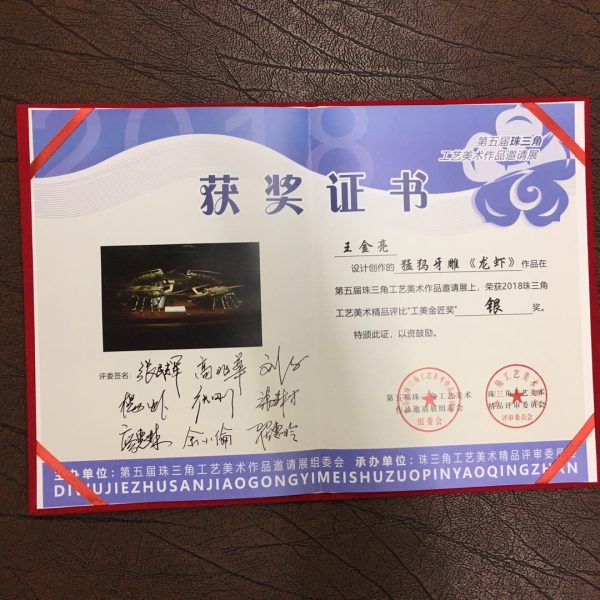 2018
第五届珠三角
工艺美术作品邀请展
获奖证书
王金亮
设计创作的 猛犸牙雕《龙虾》 作品在
第五届珠三角工艺美术作品邀请展上，荣获2018珠三角
工艺美术精品评比“工美金匠奖” 银 奖。
特颁此证，以资鼓励。
评委签名：
第五届珠三角工艺美术
作品邀请展组委会
组委会
珠三角工艺美术
精品评审委员会
评审委员会
主办单位：第五届珠三角工艺美术作品邀请展组委会 承办单位：珠三角工艺美术精品评审委员会
DIWUJIEZHUSANJIAOGONGYIMEISHUZUOPINYAOQINGZHAN